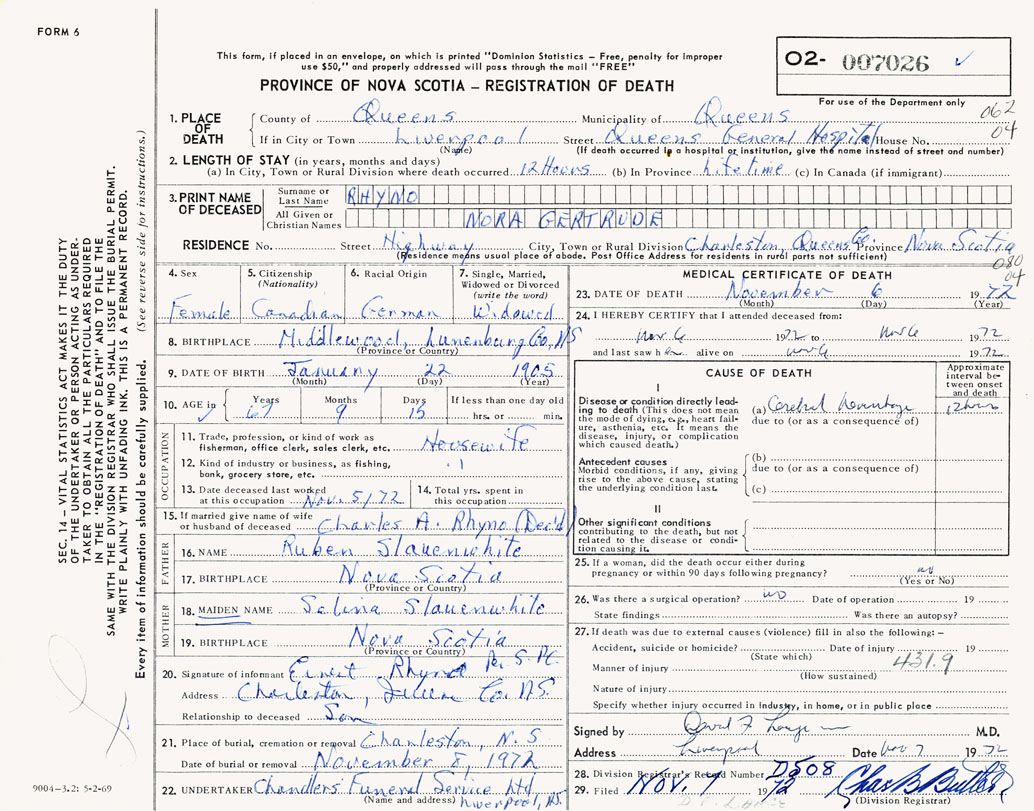 FORM 6
This form, if placed in an envelope, on which is printed "Dominion Statistics – Free, penalty for improper
use $50," and properly addressed will pass through the mail "FREE"
PROVINCE OF NOVA SCOTIA – REGISTRATION OF DEATH
02- 007026 ✓
For use of the Department only
062
04
1. PLACE OF DEATH
County of Queens Municipality of Queens
If in City or Town Liverpool Street Queens General Hospital House No.
(Name) (If death occurred in a hospital or institution, give the name instead of street and number)
2. LENGTH OF STAY (in years, months and days)
(a) In City, Town or Rural Division where death occurred 12 Hours (b) In Province Lifetime (c) In Canada (if immigrant)
3. PRINT NAME OF DECEASED
Surname or Last Name RHYNO
All Given or Christian Names NORA GERTRUDE
RESIDENCE No. Street Highway City, Town or Rural Division Charleston, Queens Co. Province Nova Scotia
(Residence means usual place of abode. Post Office Address for residents in rural parts not sufficient)
080
04
4. Sex
Female
5. Citizenship (Nationality)
Canadian
6. Racial Origin
German
7. Single, Married, Widowed or Divorced (write the word)
Widowed
8. BIRTHPLACE Middlewood, Lunenburg Co, NS
(Province or Country)
9. DATE OF BIRTH January 22 1905
(Month) (Day) (Year)
10. AGE in Years Months Days If less than one day old
67 9 15 hrs. or min.
OCCUPATION
11. Trade, profession, or kind of work as
fisherman, office clerk, sales clerk, etc. Housewife
12. Kind of industry or business, as fishing,
bank, grocery store, etc.
13. Date deceased last worked
at this occupation Nov. 5/72
14. Total yrs. spent in
this occupation
15. If married give name of wife
or husband of deceased Charles A. Rhyno (Dec'd)
FATHER
16. NAME Ruben Slauenwhite
17. BIRTHPLACE Nova Scotia
(Province or Country)
MOTHER
18. MAIDEN NAME Salina Slauenwhite
19. BIRTHPLACE Nova Scotia
(Province or Country)
20. Signature of informant Ernest Rhyno
Address Charleston, Queens Co. N.S.
Relationship to deceased Son
21. Place of burial, cremation or removal Charleston, N.S
Date of burial or removal November 8, 1972
22. UNDERTAKER Chandlers Funeral Service Ltd
(Name and address) Liverpool, NS.
MEDICAL CERTIFICATE OF DEATH
23. DATE OF DEATH November 6 1972
(Month) (Day) (Year)
24. I HEREBY CERTIFY that I attended deceased from:
Nov 6 1972 to Nov 6 1972
and last saw her alive on Nov 6 1972
CAUSE OF DEATH
Approximate interval between onset and death
I
Disease or condition directly leading
to death (This does not
mean the mode of dying, e.g., heart failure,
asthenia, etc. It means the
disease, injury, or complication
which caused death.)
(a) Cerebral hemorrhage 12 hours
due to (or as a consequence of)
Antecedent causes
Morbid conditions, if any, giving
rise to the above cause, stating
the underlying condition last.
(b)
due to (or as a consequence of)
(c)
II
Other significant conditions
contributing to the death, but not
related to the disease or condition
causing it.
25. If a woman, did the death occur either during
pregnancy or within 90 days following pregnancy? no
(Yes or No)
26. Was there a surgical operation? no Date of operation 19
State findings Was there an autopsy?
27. If death was due to external causes (violence) fill in also the following: –
Accident, suicide or homicide? Date of injury 19
(State which) 431.9
Manner of injury
(How sustained)
Nature of injury
Specify whether injury occurred in Industry, in home, or in public place
Signed by M.D.
Address Liverpool Date Nov 7 1972
28. Division Registrar's Record Number D508
29. Filed Nov. 7 1972 Chas B Butler
(Division Registrar)
SEC. 14 – VITAL STATISTICS ACT MAKES IT THE DUTY
OF THE UNDERTAKER OR PERSON ACTING AS UNDERTAKER
TO OBTAIN ALL THE PARTICULARS REQUIRED
IN THE "REGISTRATION OF DEATH" AND TO FILE THE
SAME WITH THE DIVISION REGISTRAR WHO SHALL ISSUE THE BURIAL PERMIT.
WRITE PLAINLY WITH UNFADING INK. THIS IS A PERMANENT RECORD.
Every item of information should be carefully supplied. (See reverse side for instructions.)
9004-3.2: 5-2-69